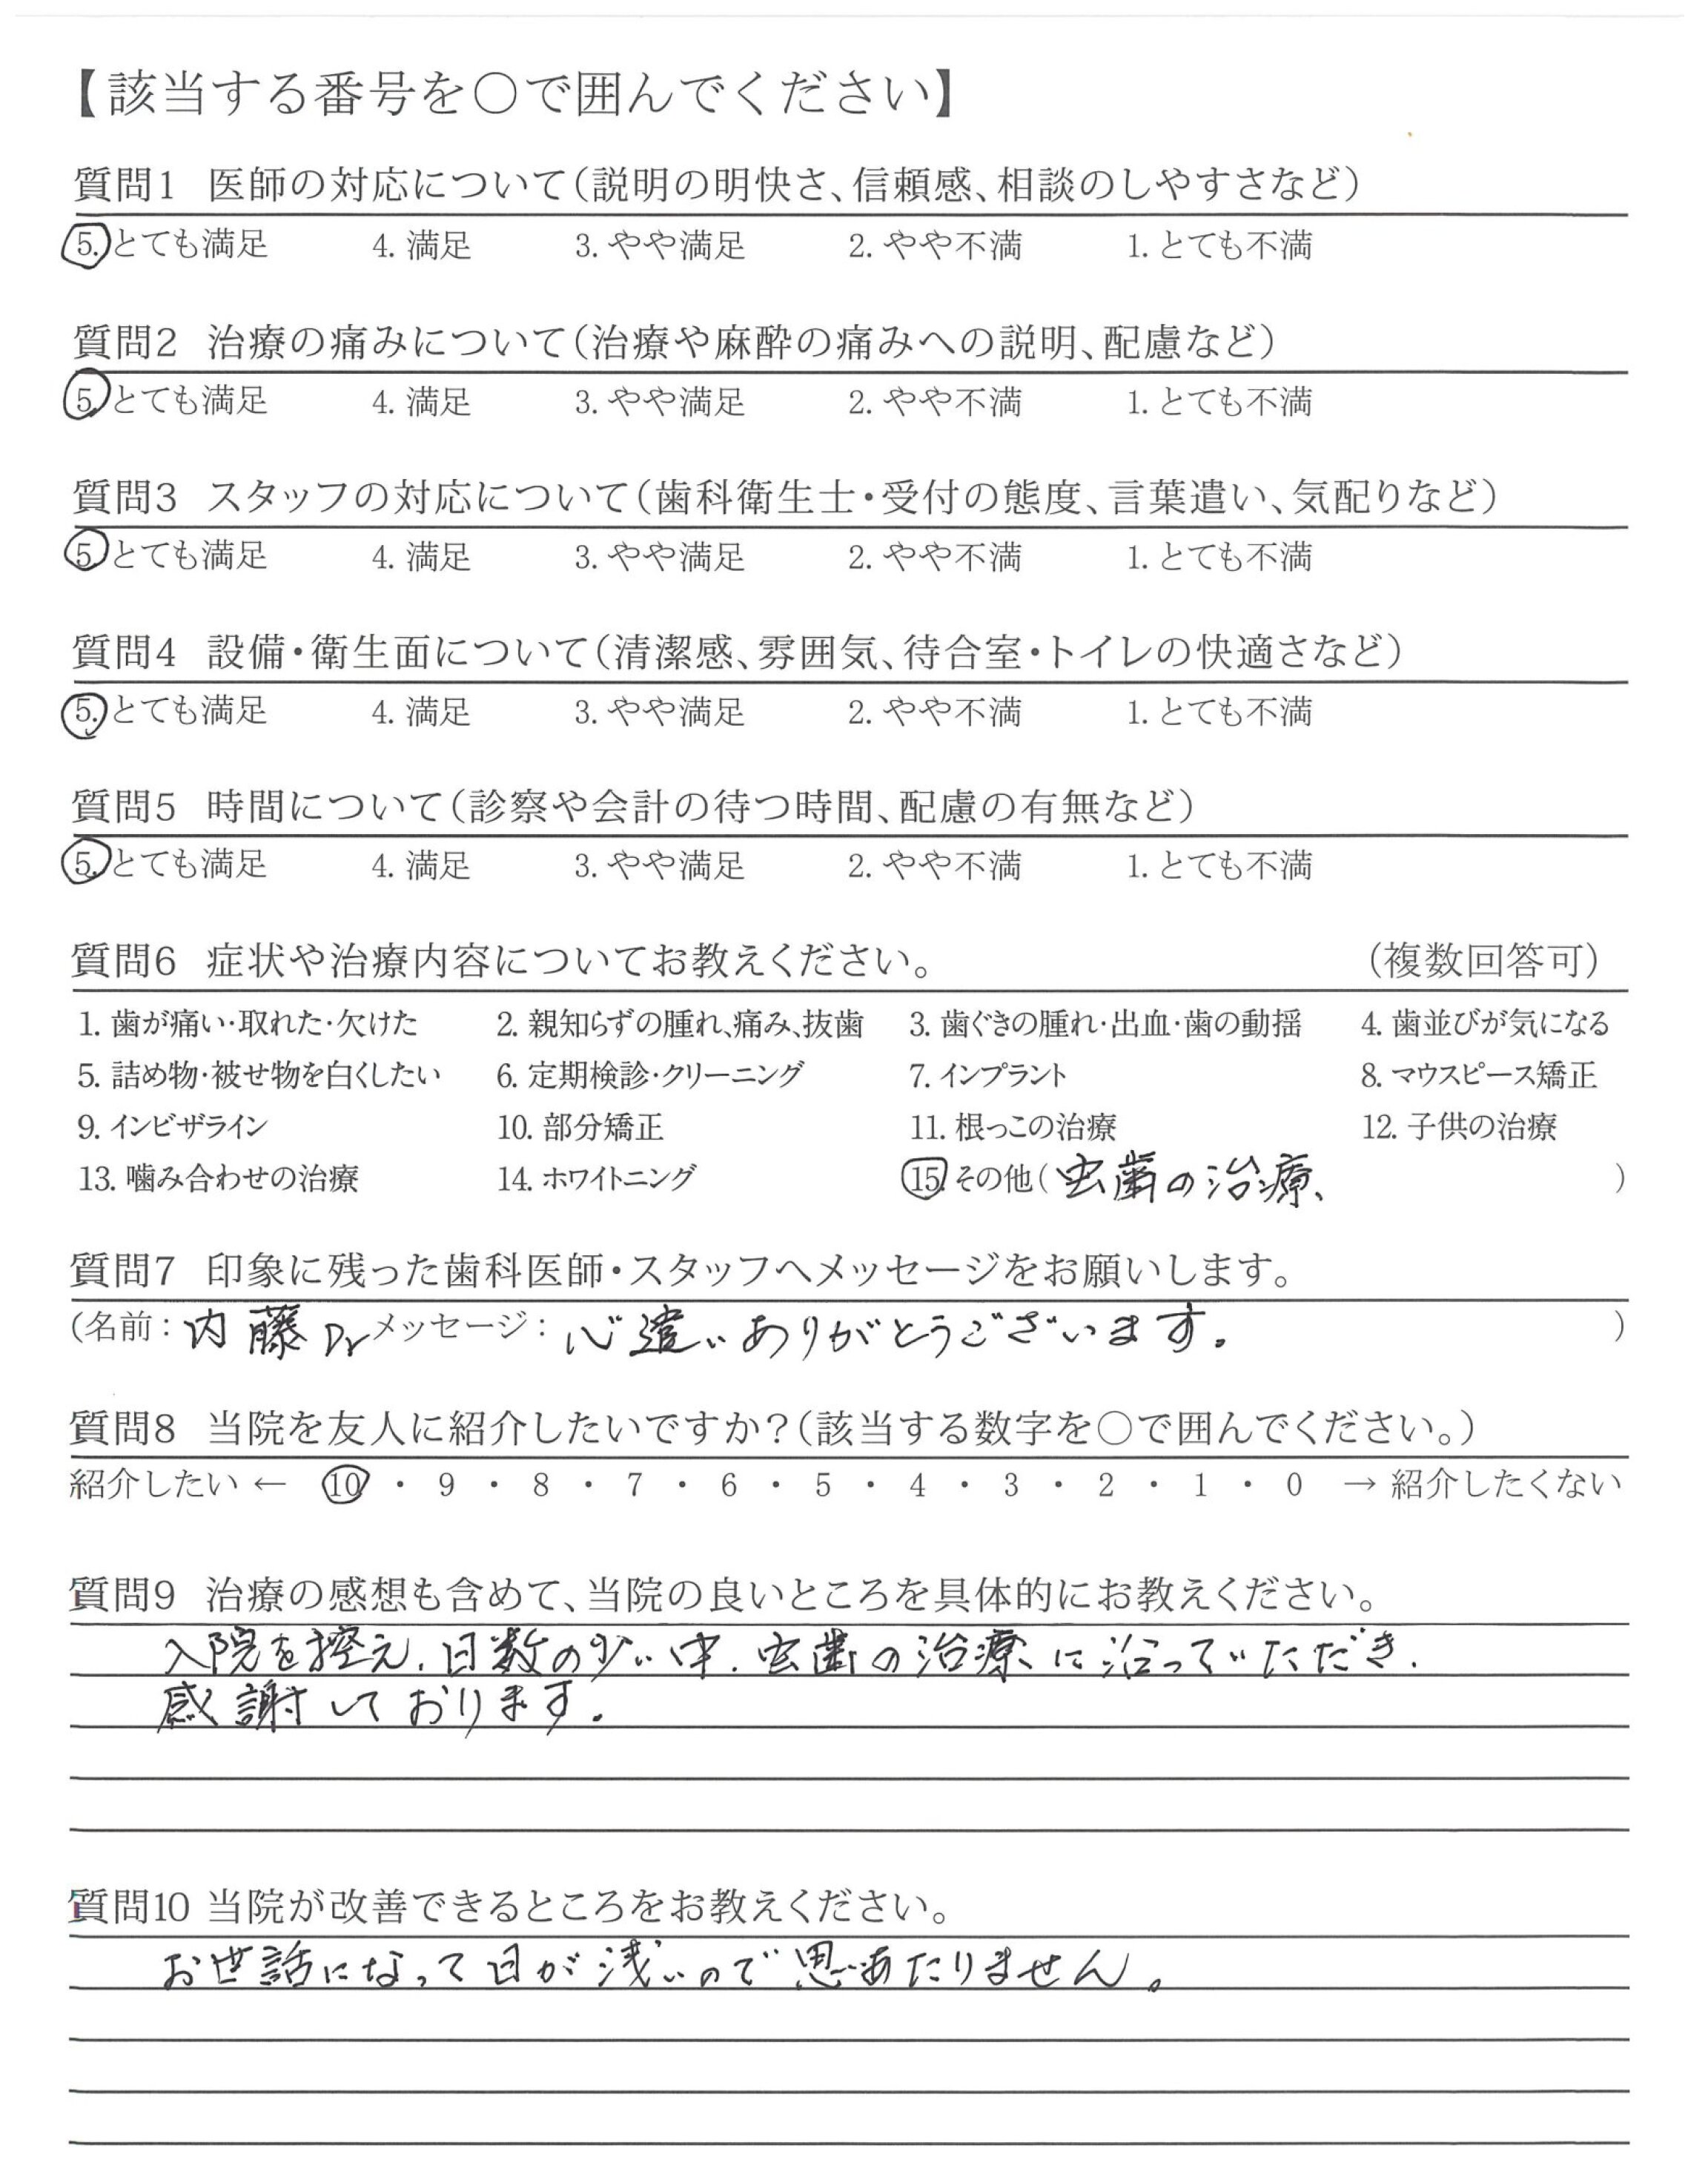 【該当する番号を○で囲んでください】
質問1 医師の対応について(説明の明快さ、信頼感、相談のしやすさなど)
5. とても満足 4. 満足 3. やや満足 2. やや不満 1. とても不満
質問2 治療の痛みについて(治療や麻酔の痛みへの説明、配慮など)
5. とても満足 4. 満足 3. やや満足 2. やや不満 1. とても不満
質問3 スタッフの対応について(歯科衛生士・受付の態度、言葉遣い、気配りなど)
5. とても満足 4. 満足 3. やや満足 2. やや不満 1. とても不満
質問4 設備・衛生面について(清潔感、雰囲気、待合室・トイレの快適さなど)
5. とても満足 4. 満足 3. やや満足 2. やや不満 1. とても不満
質問5 時間について(診察や会計の待つ時間、配慮の有無など)
5. とても満足 4. 満足 3. やや満足 2. やや不満 1. とても不満
質問6 症状や治療内容についてお教えください。 (複数回答可)
1. 歯が痛い・取れた・欠けた 2. 親知らずの腫れ、痛み、抜歯 3. 歯ぐきの腫れ・出血・歯の動揺 4. 歯並びが気になる
5. 詰め物・被せ物を白くしたい 6. 定期検診・クリーニング 7. インプラント 8. マウスピース矯正
9. インビザライン 10. 部分矯正 11. 根っこの治療 12. 子供の治療
13. 噛み合わせの治療 14. ホワイトニング 15. その他(虫歯の治療、)
質問7 印象に残った歯科医師・スタッフへメッセージをお願いします。
(名前:内藤Dr メッセージ:心遣いありがとうございます。)
質問8 当院を友人に紹介したいですか?(該当する数字を○で囲んでください。)
紹介したい ← 10 ・ 9 ・ 8 ・ 7 ・ 6 ・ 5 ・ 4 ・ 3 ・ 2 ・ 1 ・ 0 → 紹介したくない
質問9 治療の感想も含めて、当院の良いところを具体的にお教えください。
入院を控え、日数の少い中、虫歯の治療に沿っていただき、
感謝しております。
質問10 当院が改善できるところをお教えください。
お世話になって日が浅いので思いあたりません。